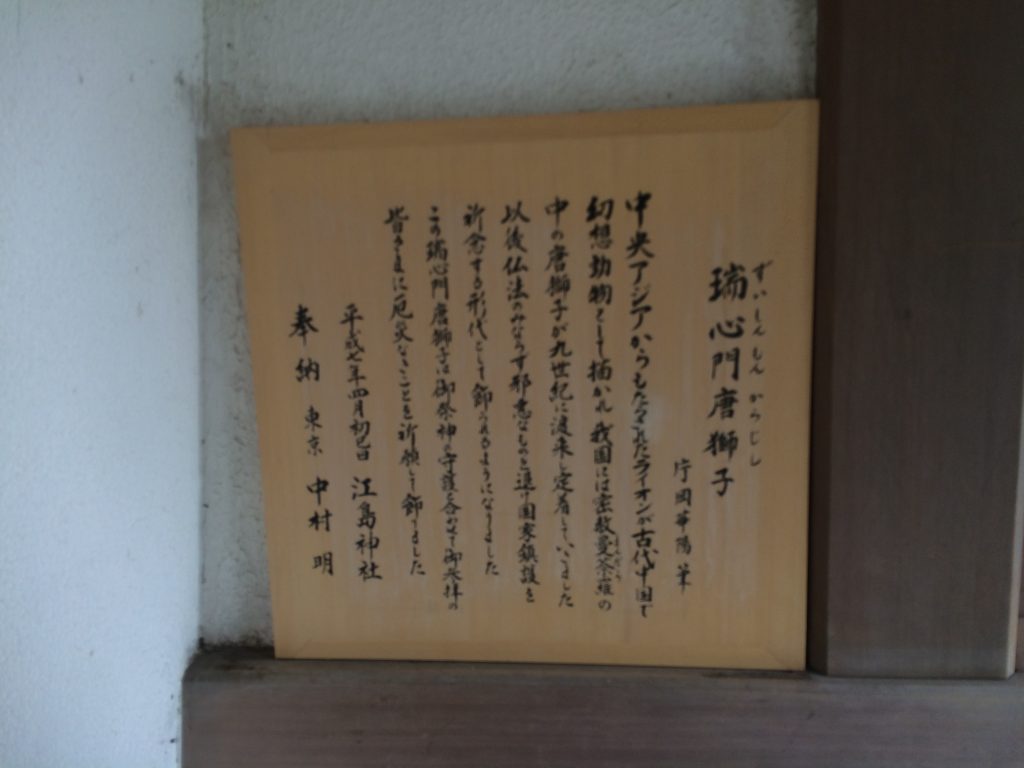 ずいしんもんからじし
瑞心門唐獅子
片岡華陽筆
中央アジアからもたらされたライオンが古代中国で
幻想動物として描かれ我国には密教曼荼羅の
中の唐獅子が九世紀に渡来し定着していいました
以後仏法のみならず邪悪なものを退け国家鎮護を
祈念する形代として飾られるようになりました
この瑞心門唐獅子は御祭神の守護と合わせて御参拝の
皆さまに厄災なきことを祈願して飾りました
平成七年四月初巳日 江島神社
奉納 東京 中村明